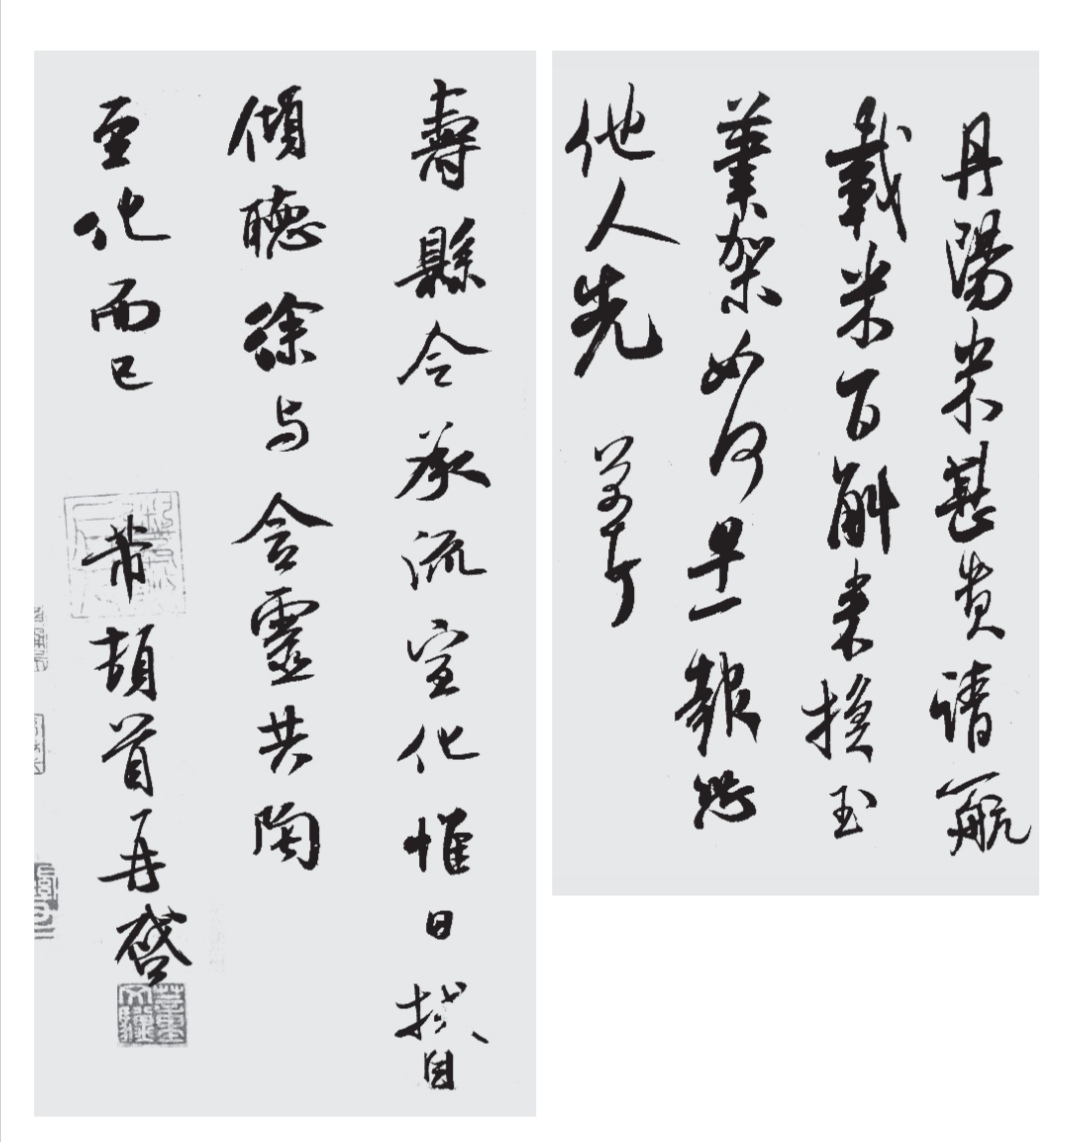 丹陽米甚貴請一航
載米百斛来換玉
筆架如何早一報恐
他人先 芾頓首
壽縣令承流宣化惟日拭目
傾聴徐与含靈共陶
至化而已 芾頓首再啓